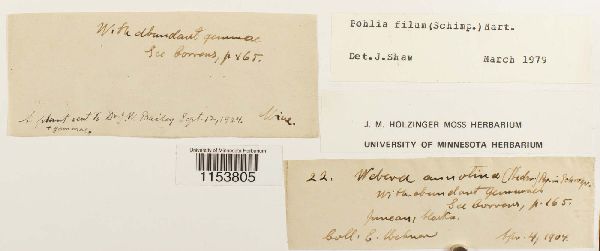 With abundant gemmae
See Correns, p. 165.
A plant sent to Dr. J. W. Bailey Sept. 12, 1924.
+ gemmae.
Pohlia filum(Schimp.) Mart.
Det.J.Shaw March 1979
J. M. HOLZINGER MOSS HERBARIUM
UNIVERSITY OF MINNESOTA HERBARIUM
University of Minnesota Herbarium
1153805
22. Webera annotina (Hedw.)
With abundant gemmae
See Correns, p. 165.
Juneau, Alaska.
Coll. E. Apr. 4, 1904.